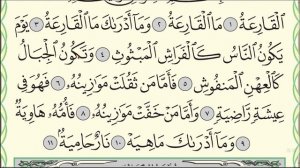 ٱلْقَارِعَةُ ١ مَا ٱلْقَارِعَةُ ٢ وَمَآ أَدْرَىٰكَ مَا ٱلْقَارِعَةُ ٣ يَوْمَ
يَكُونُ ٱلنَّاسُ كَٱلْفَرَاشِ ٱلْمَبْثُوثِ ٤ وَتَكُونُ ٱلْجِبَالُ
كَٱلْعِهْنِ ٱلْمَنفُوشِ ٥ فَأَمَّا مَن ثَقُلَتْ مَوَٰزِينُهُۥ ٦ فَهُوَ فِى
عِيشَةٍ رَّاضِيَةٍ ٧ وَأَمَّا مَنْ خَفَّتْ مَوَٰزِينُهُۥ ٨ فَأُمُّهُۥ هَاوِيَةٌ
٩ وَمَآ أَدْرَىٰكَ مَا هِيَهْ ١٠ نَارٌ حَامِيَةٌۢ ١١